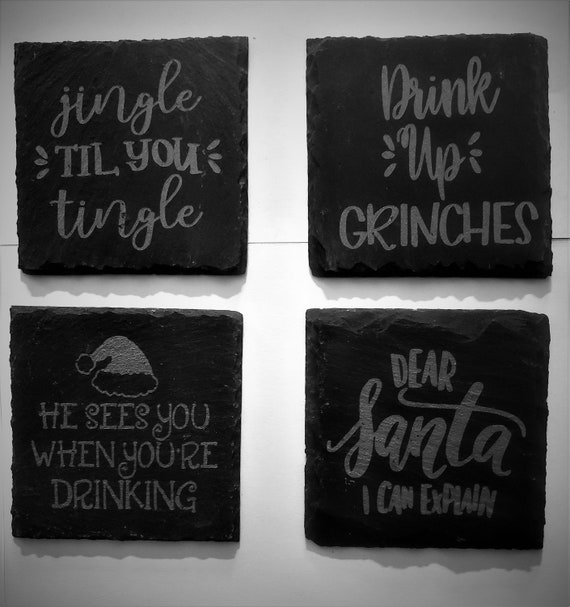 jingle
TIL YOU
tingle
Drink
Up
GRINCHES
HE SEES YOU
WHEN YOU'RE
DRINKING
DEAR
Santa
I CAN EXPLAIN